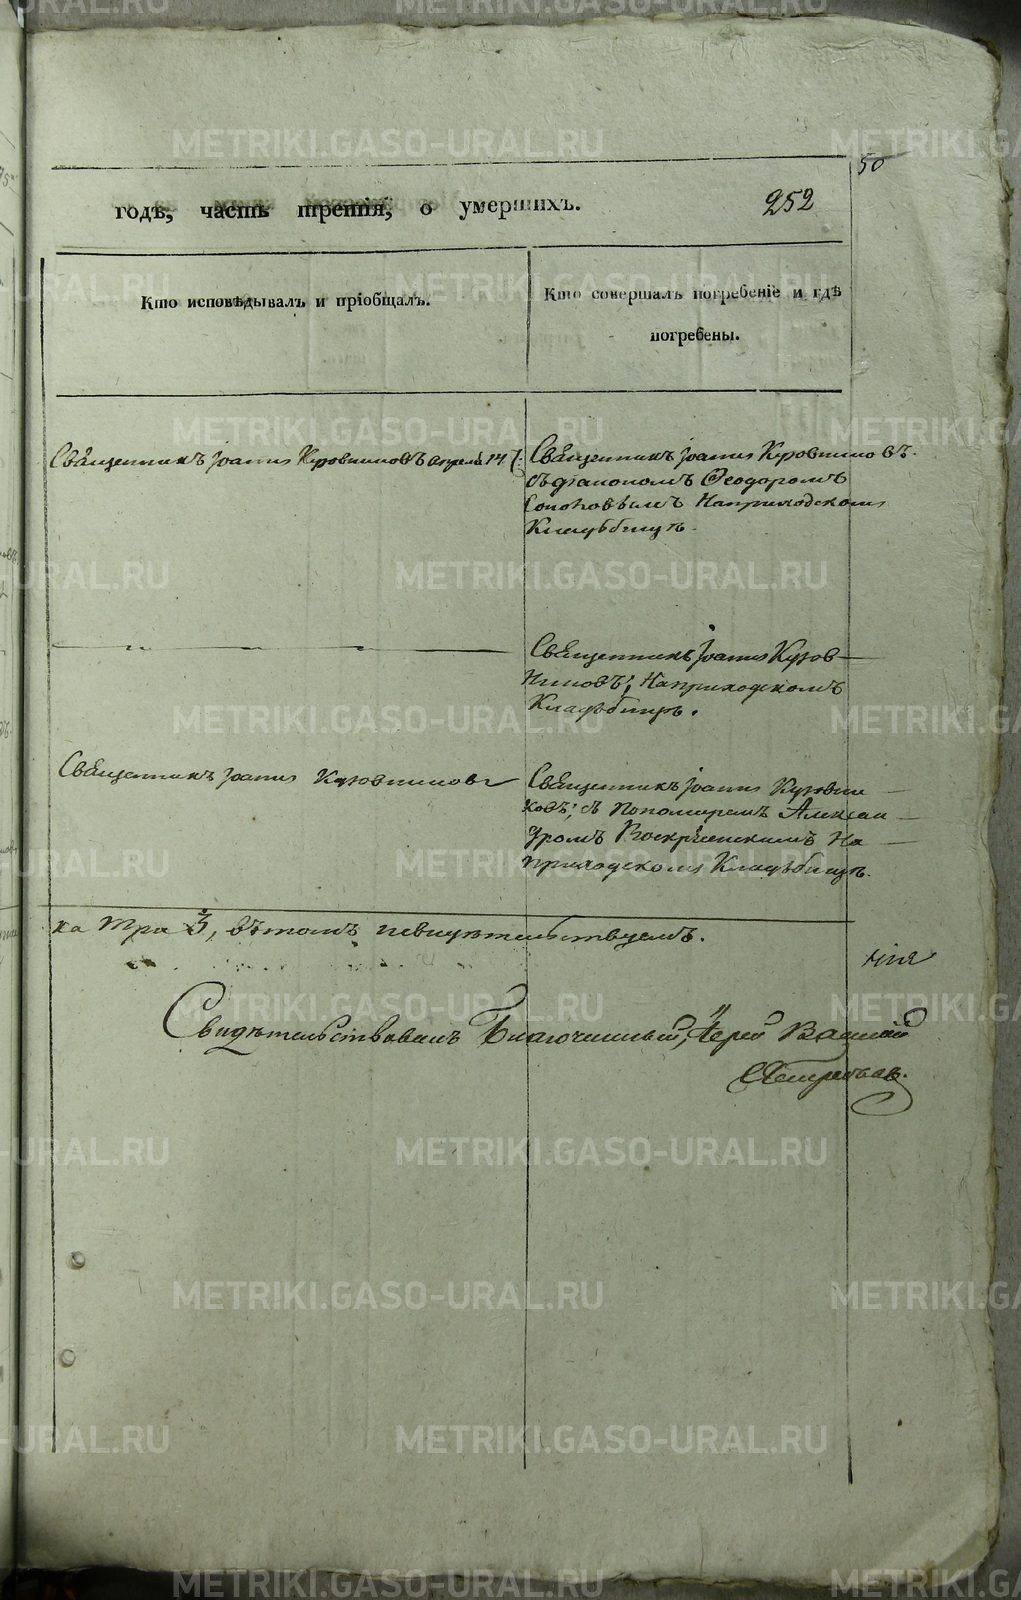 50
годѣ, часть третія, о умершихъ.
252
Кто исповѣдывалъ и пріобщалъ.
Кто совершалъ погребеніе и гдѣ
погребены.
Священникъ Іоаннъ Кузовниковъ апреля 14
Священникъ Іоаннъ Кузовниковъ
съ діакономъ Ѳеодоромъ
Наприходскомъ
Кладъбищѣ.
Священникъ Іоаннъ Кузов
никовъ; Наприходскомъ
Кладъбищѣ.
Священникъ Іоаннъ Кузовниковъ
Священникъ Іоаннъ Кузовни
ковъ; съ Пономаремъ Алексан
дромъ Воскресенскимъ На
приходскомъ Кладъбищѣ.
на три 3, въ томъ свидѣтельствуемъ.
Свидѣтельствовалъ Благочинный, Іерей Василій
METRIKI.GASO-URAL.RU